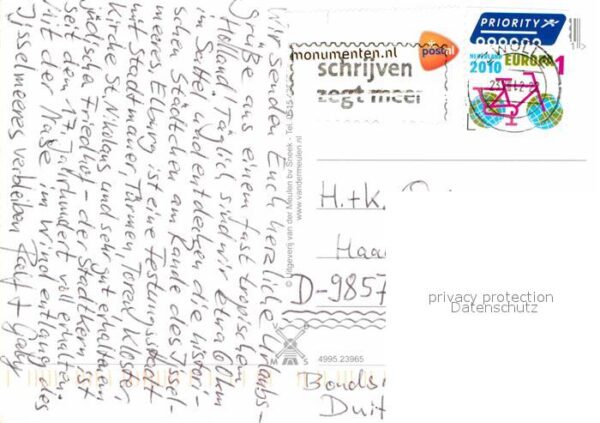 Wir senden Euch herzliche Urlaubs-
grüße aus einem fast tropischen
Holland! Täglich sind wir etwa 60 km
im Sattel und entdecken die histori-
schen Städtchen am Rande des Ijssel-
meeres. Elburg ist eine Festungsstadt
mit Stadtmauer, Türmen, Toren, Kloster,
Kirche St. Nikolaus und sehr gut erhaltenem
jüdische Friedhof - der Stadtkern ist
seit dem 17. Jahrhundert voll erhalten.
Mit der Nase im Wind entlang des
Ijsselmeeres verbleiben Ralf + Gaby
© Uitgeverij van der Meulen bv Sneek - Tel. 0515
www.vandermeulen.nl
V
M S
4995.23965
monumenten.nl
schrijven
zegt meer
postnl
PRIORITY
ZWOLLE
NEDERLAND
2010
EUROPA 1
H.+K.
Haa
D-9857
Bundes
Duit
privacy protection
Datenschutz